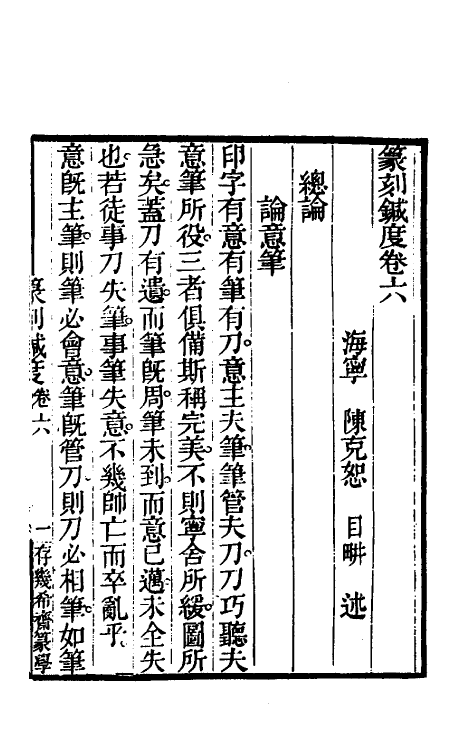 篆刻鍼度卷六
海寧 陳克恕 目畊 述
總論
論意筆
印字有意有筆有刀意主夫筆筆管夫刀刀巧聽夫
意筆所役三者俱備斯稱完美不則寧舍所緩圖所
急矣蓋刀有遺而筆旣周筆未到而意已邁未全失
也若徒事刀失筆事筆失意不幾師亡而卒亂乎
意旣主筆則筆必會意筆旣管刀則刀必相筆如筆
篆刻鍼度卷六 一 存幾希齋篆學